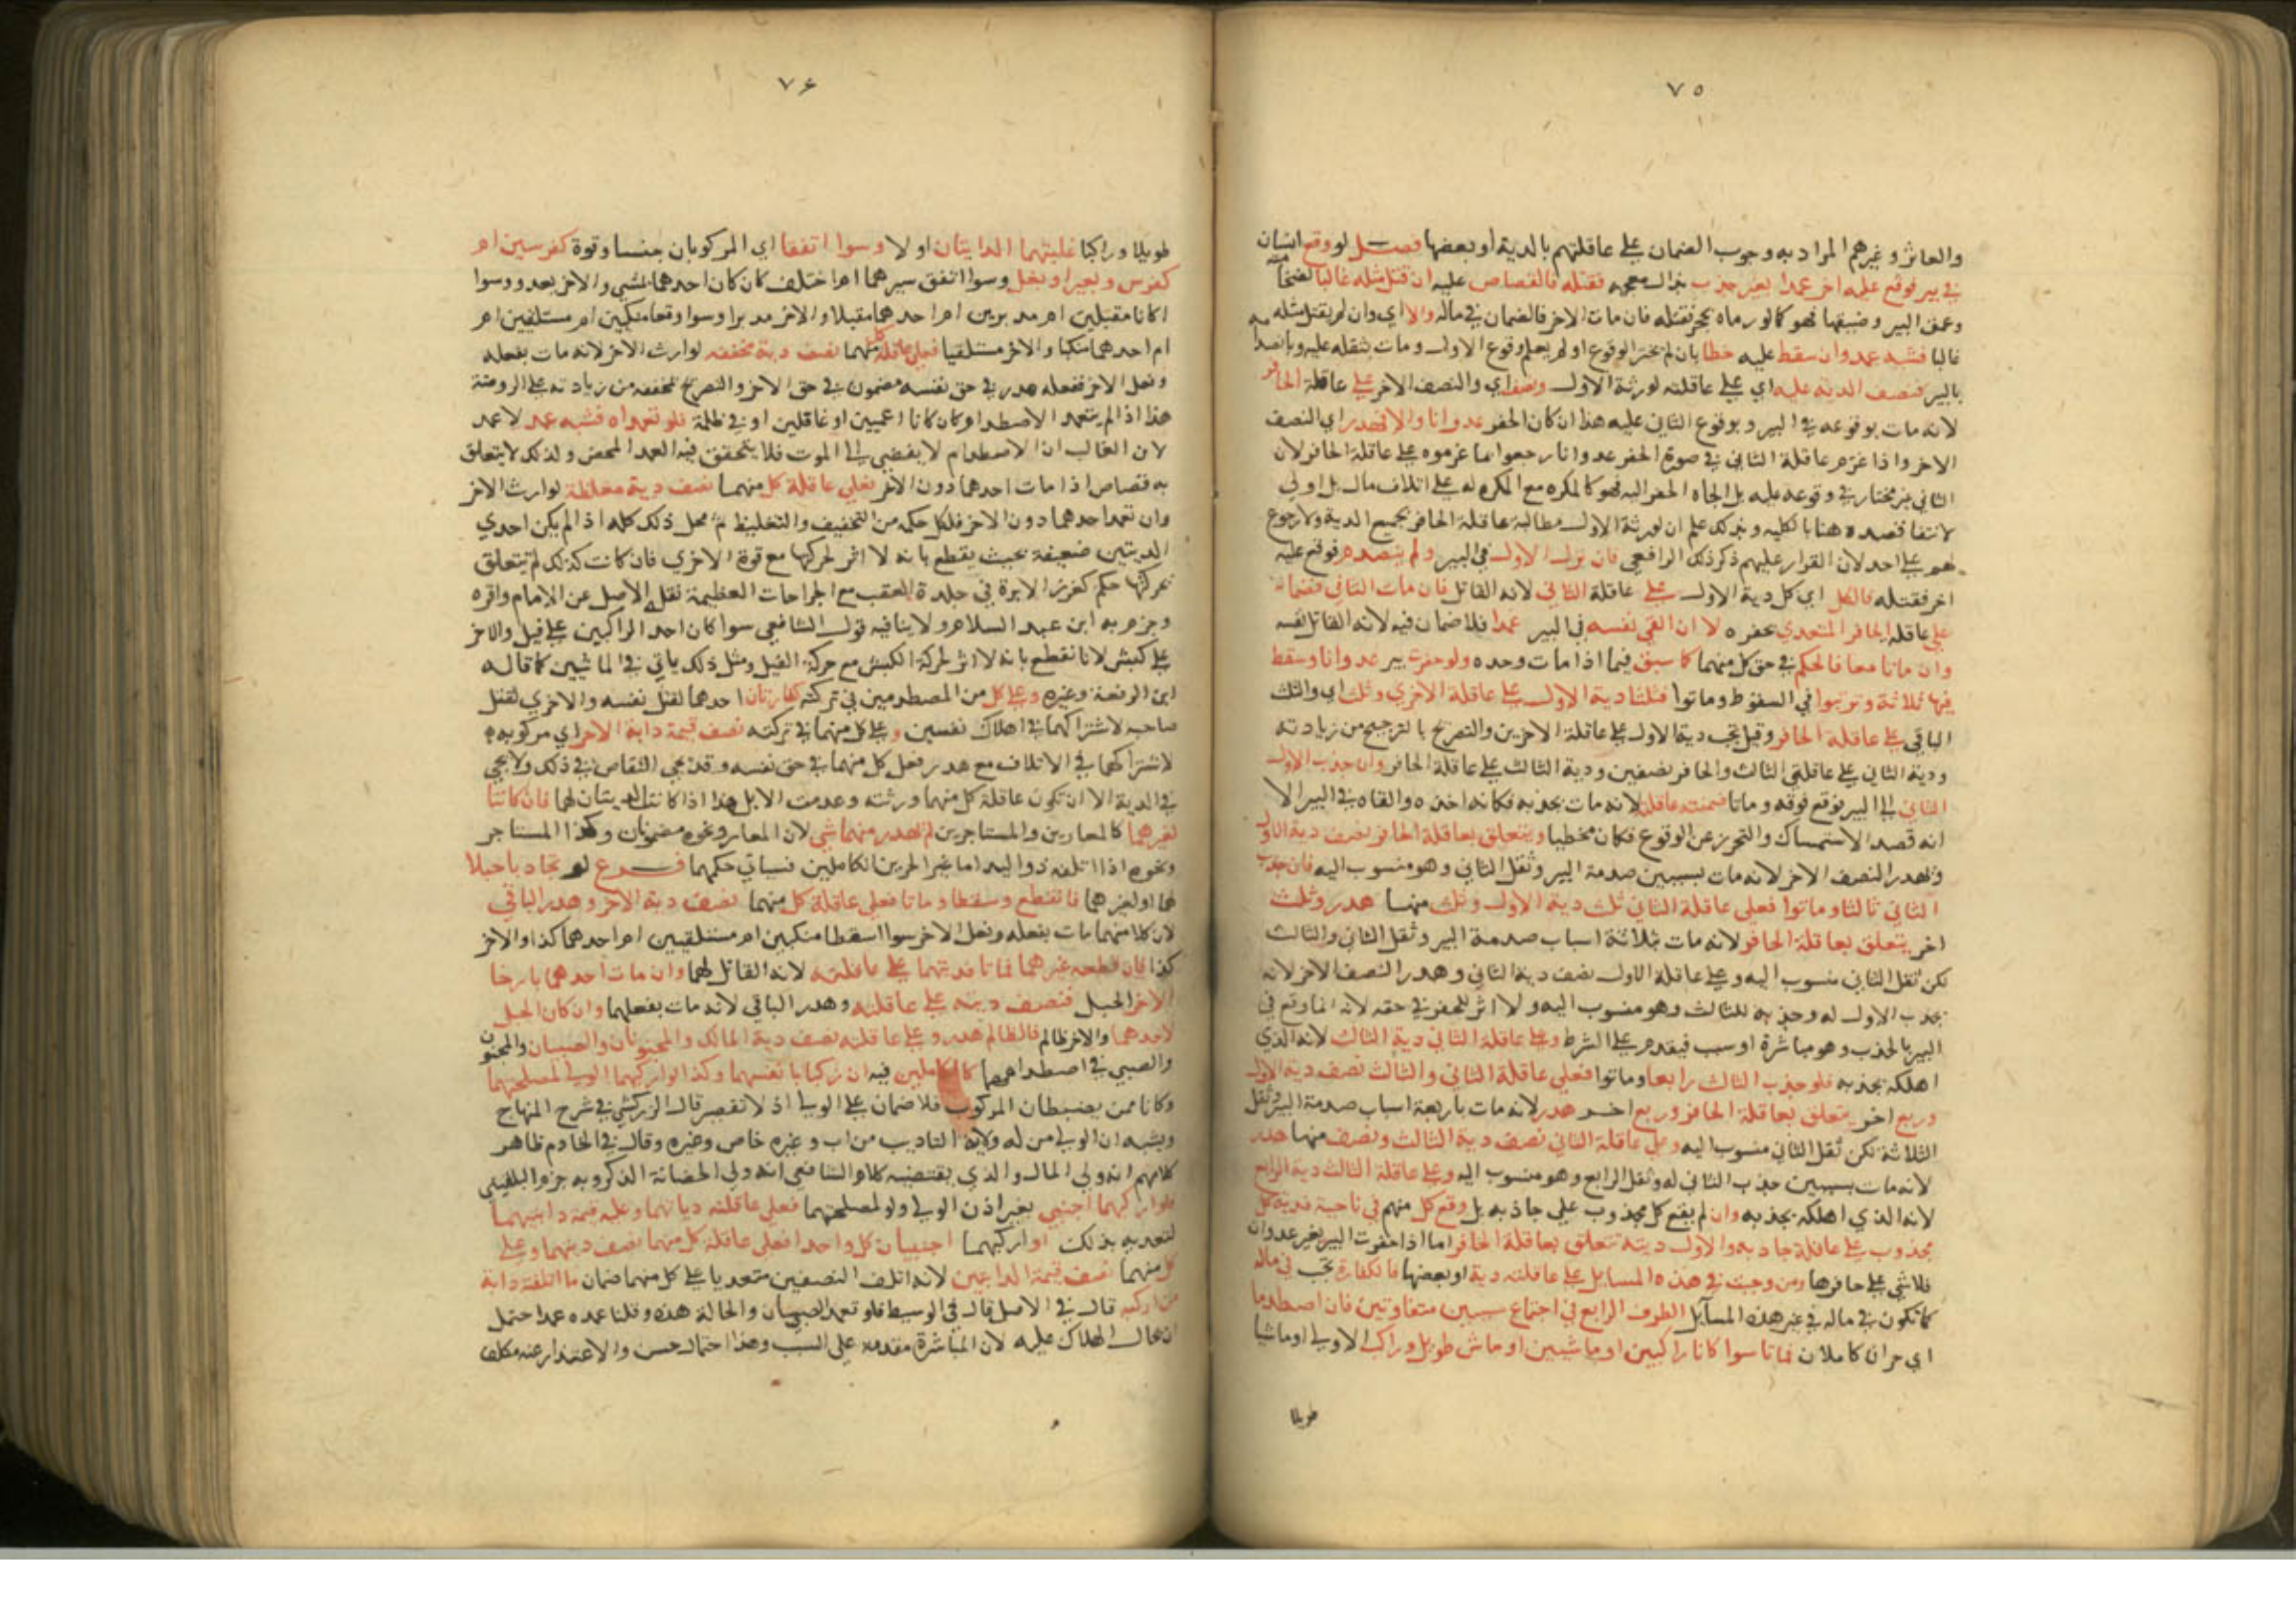 ٧٥
والعاثر وغيرهم المراد به وجوب الضمان على عاقلتهم بالدية أو بعضها فصل لو وقع انسان
في بير فوقع عليه اخر عمدا بغير جذب فقتله فالقصاص عليه ان قتل مثله غالبا لضخامته
وعمق البير وضيقها فهو كما لو رماه بحجر فقتله فان مات الاخر فالضمان في ماله والا اي وان لم يقتل مثله
غالبا فشبه عمد وان سقط عليه خطا بان لم يختر الوقوع او لم يعلم وقوع الاول ومات بثقله عليه وبانصدامه
بالبير فنصف الدية عليه اي على عاقلته لورثة الاول ونصف اي والنصف الاخر على عاقلة الحافر
لانه مات بوقوعه في البير وبوقوع الثاني عليه هذا ان كان الحفر عدوانا والا فهدر اي النصف
الاخر واذا غرم عاقلة الثاني في صورة الحفر عدوانا رجعوا بما غرموه على عاقلة الحافر لان
الثاني غير مختار في وقوعه عليه بل الجاه الحفر اليه فهو كالمكره مع المكره له على اتلاف مال بل اولى
لانتفا قصده هنا بالكلية وبذلك علم ان لورثة الاول مطالبة عاقلة الحافر بجميع الدية ولا رجوع
لهم على احد لان القرار عليهم ذكر ذلك الرافعي فان نزل الاول في البير ولم ينصدم فوقع عليه
اخر فقتله فالكل اي كل دية الاول على عاقلة الثاني لانه القاتل فان مات الثاني فضمانه
على عاقلة الحافر المتعدي بحفره لا ان القى نفسه في البير عمدا فلا ضمان فيه لانه القاتل نفسه
وان ماتا معا فالحكم في حق كل منهما كما سبق فيما اذا مات وحده ولو حفرت بير عدوانا وسقط
فيها ثلاثة وترتبوا في السقوط وماتوا فثلثا دية الاول على عاقلة الاخرى وثلث اي والثلث
الباقي على عاقلة الحافر وقيل تجب دية الاول على عاقلة الاخرين والتصريح بالترجيح من زيادته
ودية الثاني على عاقلتي الثالث والحافر نصفين ودية الثالث على عاقلة الحافر وان جذب الاول
الثاني الى البير فوقع فوقه وماتا ضمنته عاقلته لانه مات بجذبه فكانه اخذه والقاه في البير الا
انه قصد الاستمساك والتحرز عن الوقوع فكان مخطيا ويتعلق بعاقلة الحافر نصف دية الاول
وتهدر النصف الاخر لانه مات بسببين صدمة البير وثقل الثاني وهو منسوب اليه فان جذب
الثاني ثالثا وماتوا فعلى عاقلة الثاني ثلث دية الاول وثلث منها هدر وثلث
اخر يتعلق بعاقلة الحافر لانه مات بثلاثة اسباب صدمة البير وثقل الثاني والثالث
لكن ثقل الثاني منسوب اليه وعلى عاقلة الاول نصف دية الثاني وهدر النصف الاخر لانه
بجذب الاول له وجذبه للثالث وهو منسوب اليه ولا اثر للحفر في حقه لانه انما وقع في
البير بالجذب وهو مباشرة او سبب فيقدم على الشرط وعلى عاقلة الثاني دية الثالث لانه الذي
اهلكه بجذبه فلو جذب الثالث رابعا وماتوا فعلى عاقلة الثاني والثالث نصف دية الاول
وربع اخر يتعلق بعاقلة الحافر وربع اخر هدر لانه مات باربعة اسباب صدمة البير وثقل
الثلاثة لكن ثقل الثاني منسوب اليه وعلى عاقلة الثاني نصف دية الثالث ونصف منها هدر
لانه مات بسببين جذب الثاني له وثقل الرابع وهو منسوب اليه وعلى عاقلة الثالث دية الرابع
لانه الذي اهلكه بجذبه وان لم يقع كل مجذوب على جاذبه بل وقع كل منهم في ناحية فدية كل
مجذوب على عاقلة جاذبه والاول ديته تتعلق بعاقلة الحافر اما اذا حفرت البير بغير عدوان
فلا شي على حافرها ومن وجبت في هذه المسايل على عاقلته دية او بعضها فالكفارة تجب في ماله
كما تكون في ماله في غير هذه المسايل الطرف الرابع في اجتماع سببين متفاوتين فان اصطدما
اي حران كاملان فماتا سوا كانا راكبين او ماشيين او ماش طويل وراكب الاولى او ماشيا
طويلا
٧٦
طويلا وراكبا غلبتهما الدابتان او لا وسوا اتفقا اي المركوبان جنسا وقوة كفرسين ام
كفرس وبعير او بغل وسوا اتفق سيرهما ام اختلف كان كان احدهما يمشي والاخر يعدو وسوا
اكانا مقبلين ام مدبرين ام احدهما مقبلا والاخر مدبرا وسوا وقعا منكبين ام مستلقيين ام
ام احدهما منكبا والاخر مستلقيا فعلى عاقلة كل منهما نصف دية مخففة لوارث الاخر لانه مات بفعله
وفعل الاخر ففعله هدر في حق نفسه مضمون في حق الاخر والتصريح بمخففة من زيادته على الروضة
هذا اذا لم يتعمد الاصطدام كان كانا اعميين او غافلين او في ظلمة فلو تعمداه فشبه عمد لا عمد
لان الغالب ان الاصطدام لا يفضي الى الموت فلا يتحقق فيه العمد المحض ولذلك لا يتعلق
به قصاص اذا مات احدهما دون الاخر فعلى عاقلة كل منهما نصف دية مغلظة لوارث الاخر
وان تعمد احدهما دون الاخر فلكل حكمه من التخفيف والتغليظ ثم محل ذلك كله اذا لم يكن احدي
الدابتين ضعيفة بحيث يقطع بانه لا اثر لحركتها مع قوة الاخري فان كانت كذلك لم يتعلق
بحركتها حكم كغرز الابرة في جلدة العقب مع الجراحات العظيمة نقله الاصل عن الامام واقره
وجزم به ابن عبد السلام ولا ينافيه قول الشافعي سوا كان احد الراكبين على فيل والاخر
على كبش لانا نقطع بانه لا اثر لحركة الكبش مع حركة الفيل ومثل ذلك ياتي في الماشيين كما قاله
ابن الرفعة وغيره وعلى كل من المصطدمين في تركته كفارتان احدهما لقتل نفسه والاخري لقتل
صاحبه لاشتراكهما في اهلاك نفسين وعلى كل منهما في تركته نصف قيمة دابة الاخر اي مركوبه
لاشتراكهما في الاتلاف مع هدر فعل كل منهما في حق نفسه وقد يجي التقاص في ذلك ولا يجي
في الدية الا ان تكون عاقلة كل منهما ورثته وعدمت الابل هذا اذا كانت الدابتان لهما فان كانتا
لغيرهما كالمعارين والمستاجرين لم يهدر منهما شي لان المعار ونحوه مضمونان وكذا المستاجر
ونحوه اذا اتلفه ذو اليد اما غير الحرين الكاملين فسياتي حكمهما فرع لو تجاذبا حبلا
لهما او لغيرهما فانقطع وسقطا وماتا فعلى عاقلة كل منهما نصف دية الاخر وهدر الباقي
لان كلا منهما مات بفعله وفعل الاخر سوا اسقطا منكبين ام مستلقيين ام احدهما كذا والاخر
كذا فان قطعه غيرهما فماتا فديتهما على عاقلته لانه القاتل لهما وان مات احدهما بارخا
الاخر الحبل فنصف ديته على عاقلته وهدر الباقي لانه مات بفعلهما وان كان الحبل
لاحدهما والاخر ظالم فالظالم هدر وعلى عاقلته نصف دية المالك والمجنونان والصبيان والمجنون
والصبي في اصطدامهما كالكاملين فيه ان ركبا بانفسهما وكذا لو اركبهما الولي لمصلحتهما
وكانا ممن يضبطان المركوب فلا ضمان على الولي اذ لا تقصير قال الزركشي في شرح المنهاج
ويشبه ان الولي من له ولاية التاديب من اب وغيره خاص وغيره وقال في الخادم ظاهر
كلامهم انه ولي المال والذي يقتضيه كلام الشافعي انه ولي الحضانة الذكر وبه جزم البلقيني
فلو اركبهما اجنبي بغير اذن الولي ولو لمصلحتهما فعلى عاقلته دياتهما وعليه قيمة دابتيهما
لتعديه بذلك او اركبهما اجنبيان كل واحدا فعلى عاقلة كل منهما نصف ديتهما وعلى
كل منهما نصف قيمة الدابتين لانه اتلف النصفين متعديا على كل منهما ضمان ما اتلفته دابة
من اركبه قال في الاصل قال في الوسيط فلو تعمد الصبيان والحالة هذه وقلنا عمده عمدا احتمل
ان يحال الهلاك عليه لان المباشرة مقدمة على السبب وهذا احتمال حسن والاعتذار عنه متكلف